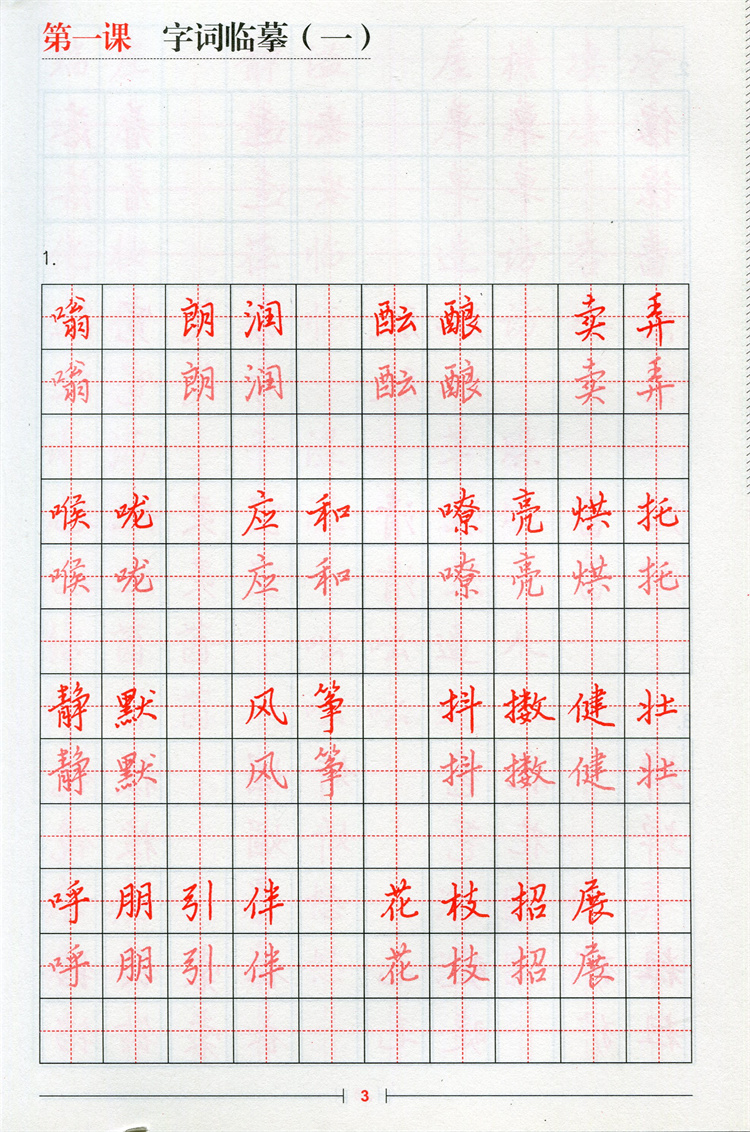 第一课 字词临摹（一）
1.
嗡 朗润 酝酿 卖弄
嗡 朗润 酝酿 卖弄
喉咙 应和 嘹亮 烘托
喉咙 应和 嘹亮 烘托
静默 风筝 抖擞 健壮
静默 风筝 抖擞 健壮
呼朋引伴 花枝招展
呼朋引伴 花枝招展
3